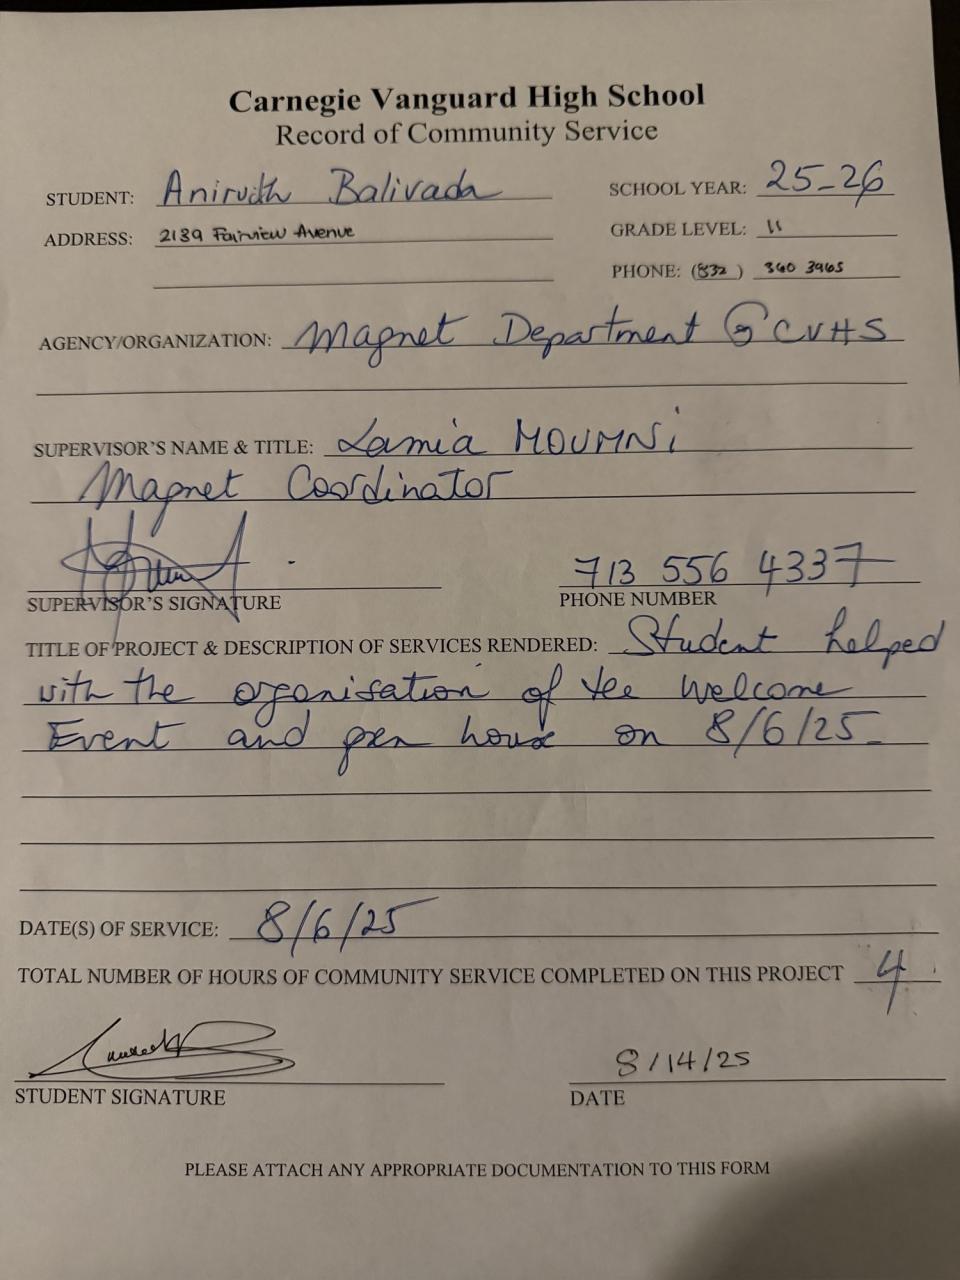 Carnegie Vanguard High School
Record of Community Service
STUDENT: Anirudh Balivada SCHOOL YEAR: 25-26
ADDRESS: 2139 Fairview Avenue GRADE LEVEL: 11
PHONE: (832) 360 3965
AGENCY/ORGANIZATION: Magnet Department @ CVHS
SUPERVISOR'S NAME & TITLE: Lamia MOUMNi
Magnet Coordinator
713 556 4337
SUPERVISOR'S SIGNATURE PHONE NUMBER
TITLE OF PROJECT & DESCRIPTION OF SERVICES RENDERED: Student helped
with the organisation of the Welcome
Event and open house on 8/6/25
DATE(S) OF SERVICE: 8/6/25
TOTAL NUMBER OF HOURS OF COMMUNITY SERVICE COMPLETED ON THIS PROJECT 4
8/14/25
STUDENT SIGNATURE DATE
PLEASE ATTACH ANY APPROPRIATE DOCUMENTATION TO THIS FORM